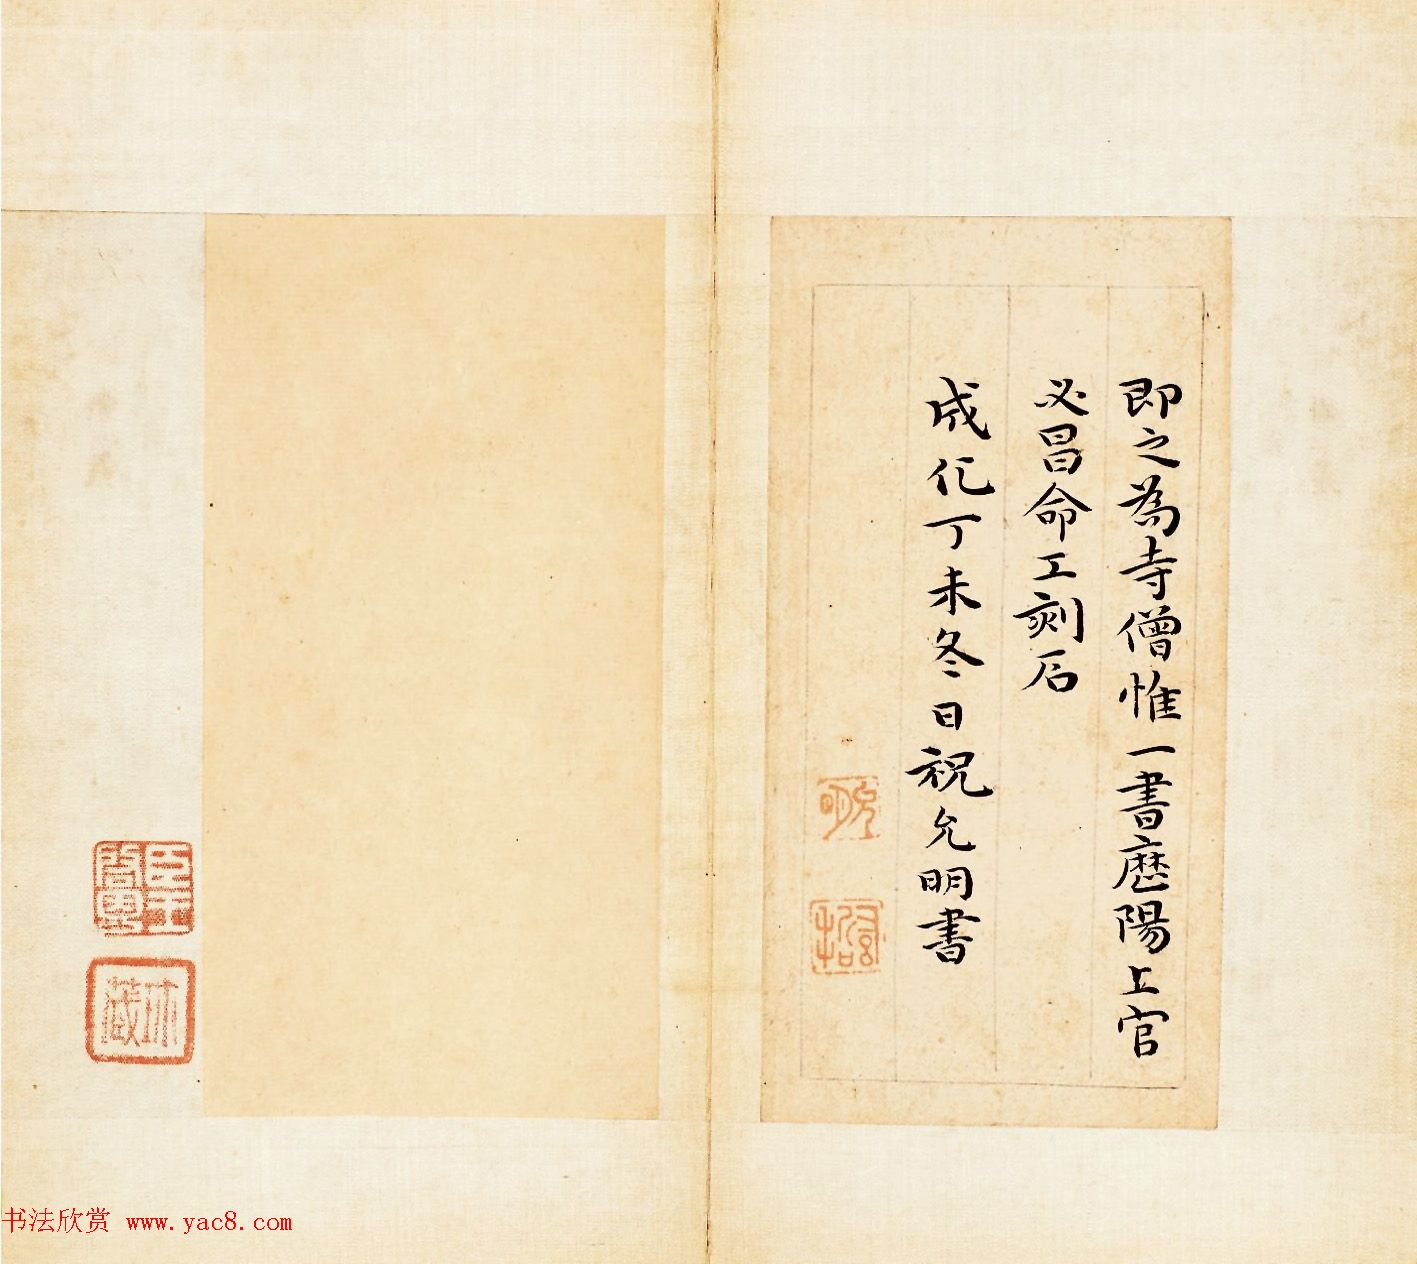 即之為寺僧惟一書歷陽上官
必昌命工刻石
成化丁未冬日祝允明書
允明
书法欣赏 www.yac8.com